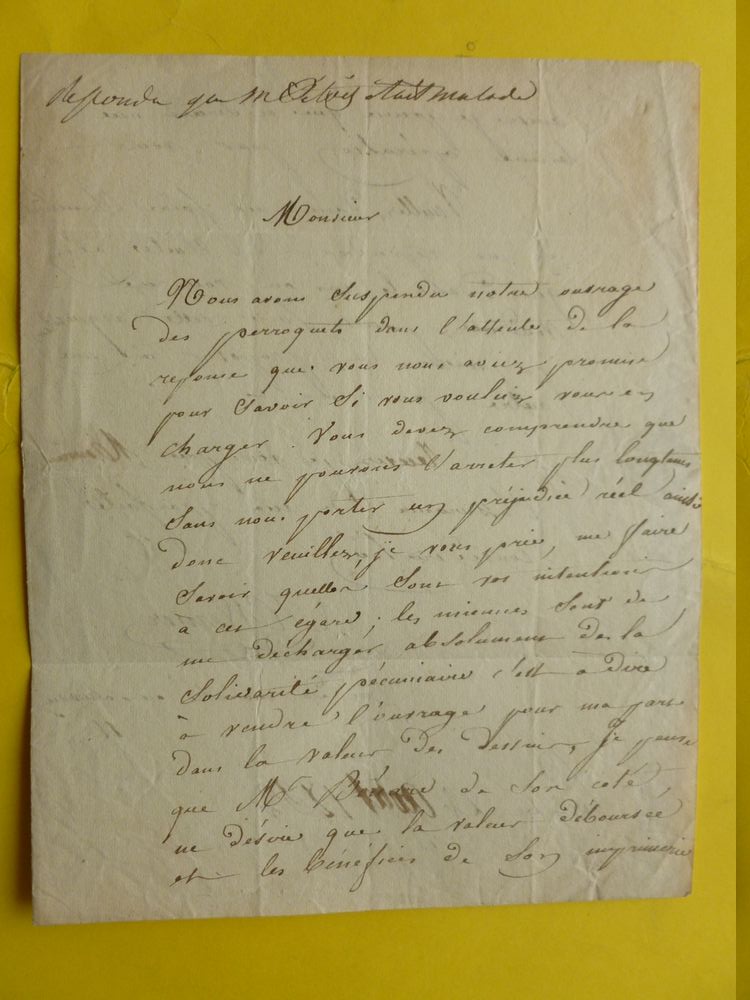 Répondu que M était malade
Monsieur
Nous avons suspendu notre ouvrage
des perroquets dans l'attente de la
reponse que vous nous aviez promise
pour savoir si vous vouliez vous en
charger. Vous devez comprendre que
nous ne pouvons l'arreter plus longtems
sans nous porter un préjudice réel ainsi
donc veuillez, je vous prie, me faire
savoir quelles sont vos intentions
à cet égard ; les miennes sont de
me decharger absolument de la
solidarité pécuniaire c'est à dire
à vendre l'ouvrage pour ma part
dans la valeur des dessins, je pense
que Mr de son coté,
ne désire que la valeur déboursée
et les bénéfices de son imprimerie